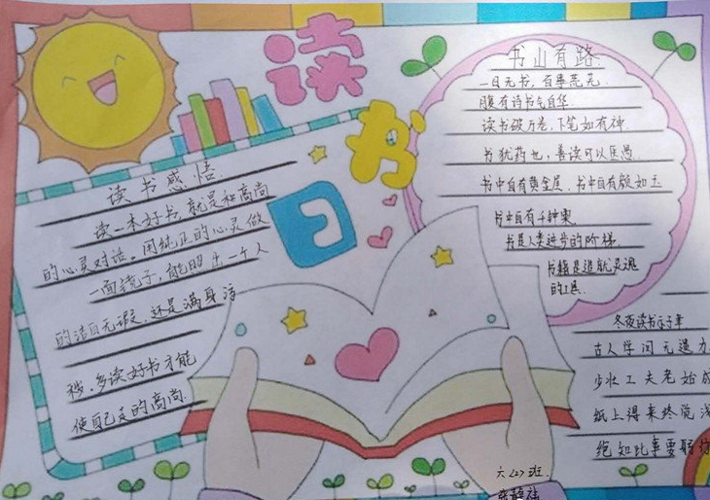 读书日
读书感悟
读一本好书,就是和高尚
的心灵对话。用纯正的心灵做
一面镜子,能照出一个人
的洁白无瑕,还是满身污
秽。多读好书才能
使自己走的高尚
书山有路
一日无书,百事荒芜.
腹有诗书气自华
读书破万卷,下笔如有神
书犹药也,善读可以医愚.
书中自有黄金屋,书中自有颜如玉
书中自有千钟粟
书是人类进步的阶梯.
书籍是造就灵魂
的工具.
冬夜读书示子聿
古人学问无遗力
少壮工夫老始成
纸上得来终觉浅
绝知此事要躬
六(2)班